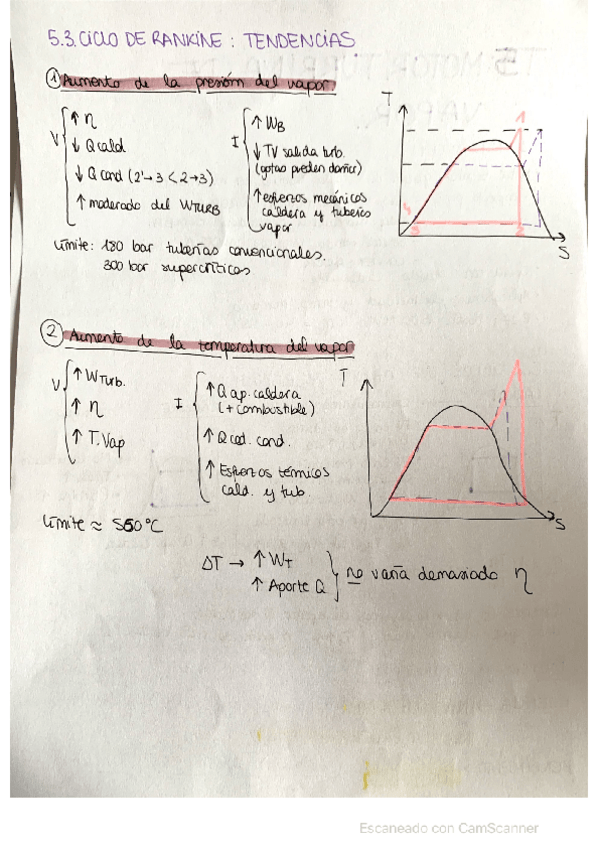 5.3. CICLO DE RANKINE: TENDENCIAS
① Aumento de la presión del vapor
V { ↑ η
↓ Q cald
↓ Q cond (2'→3 < 2→3)
↑ moderado del WTURB
I { ↑ WB
↓ TV salida turb.
(gotas pueden dañar)
↑ esfuerzos mecánicos
caldera y tuberías
vapor
límite: 180 bar tuberías convencionales.
300 bar supercríticos
T
S
② Aumento de la temperatura del vapor
V { ↑ WTurb.
↑ η
↑ T. Vap
I { ↑ Q ap. caldera
(+ combustible)
↑ Q ced. cond.
↑ Esfuerzos térmicos
cald. y tub.
T
S
límite ≈ 550 °C
ΔT → ↑ Wt
↑ Aporte Q } no varía demasiado η
Escaneado con CamScanner